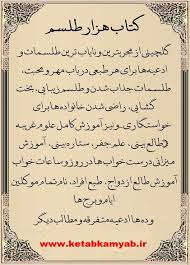 کتاب هزار طلسم
گلچینی از مجربترین و نایاب ترین طلسمات و
ادعیه ها برای هر طبعی در باب مهر و محبت،
طلسمات جذاب شدن و طلسم زیبایی، بخت
گشایی، راضی شدن خانواده ها برای
خواستگاری. و نیز آموزش کامل علوم غریبه
(طالع بینی، علم جفر، ستاره بینی، آموزش
میزانی درست خواب ها در روز و ساعات خواب
آموزش طالع ازدواج، طبع افراد، نام تمام موکلین
وده ها ادعیه متفرقه و مطالب دیگر
www.ketabkamyab.ir